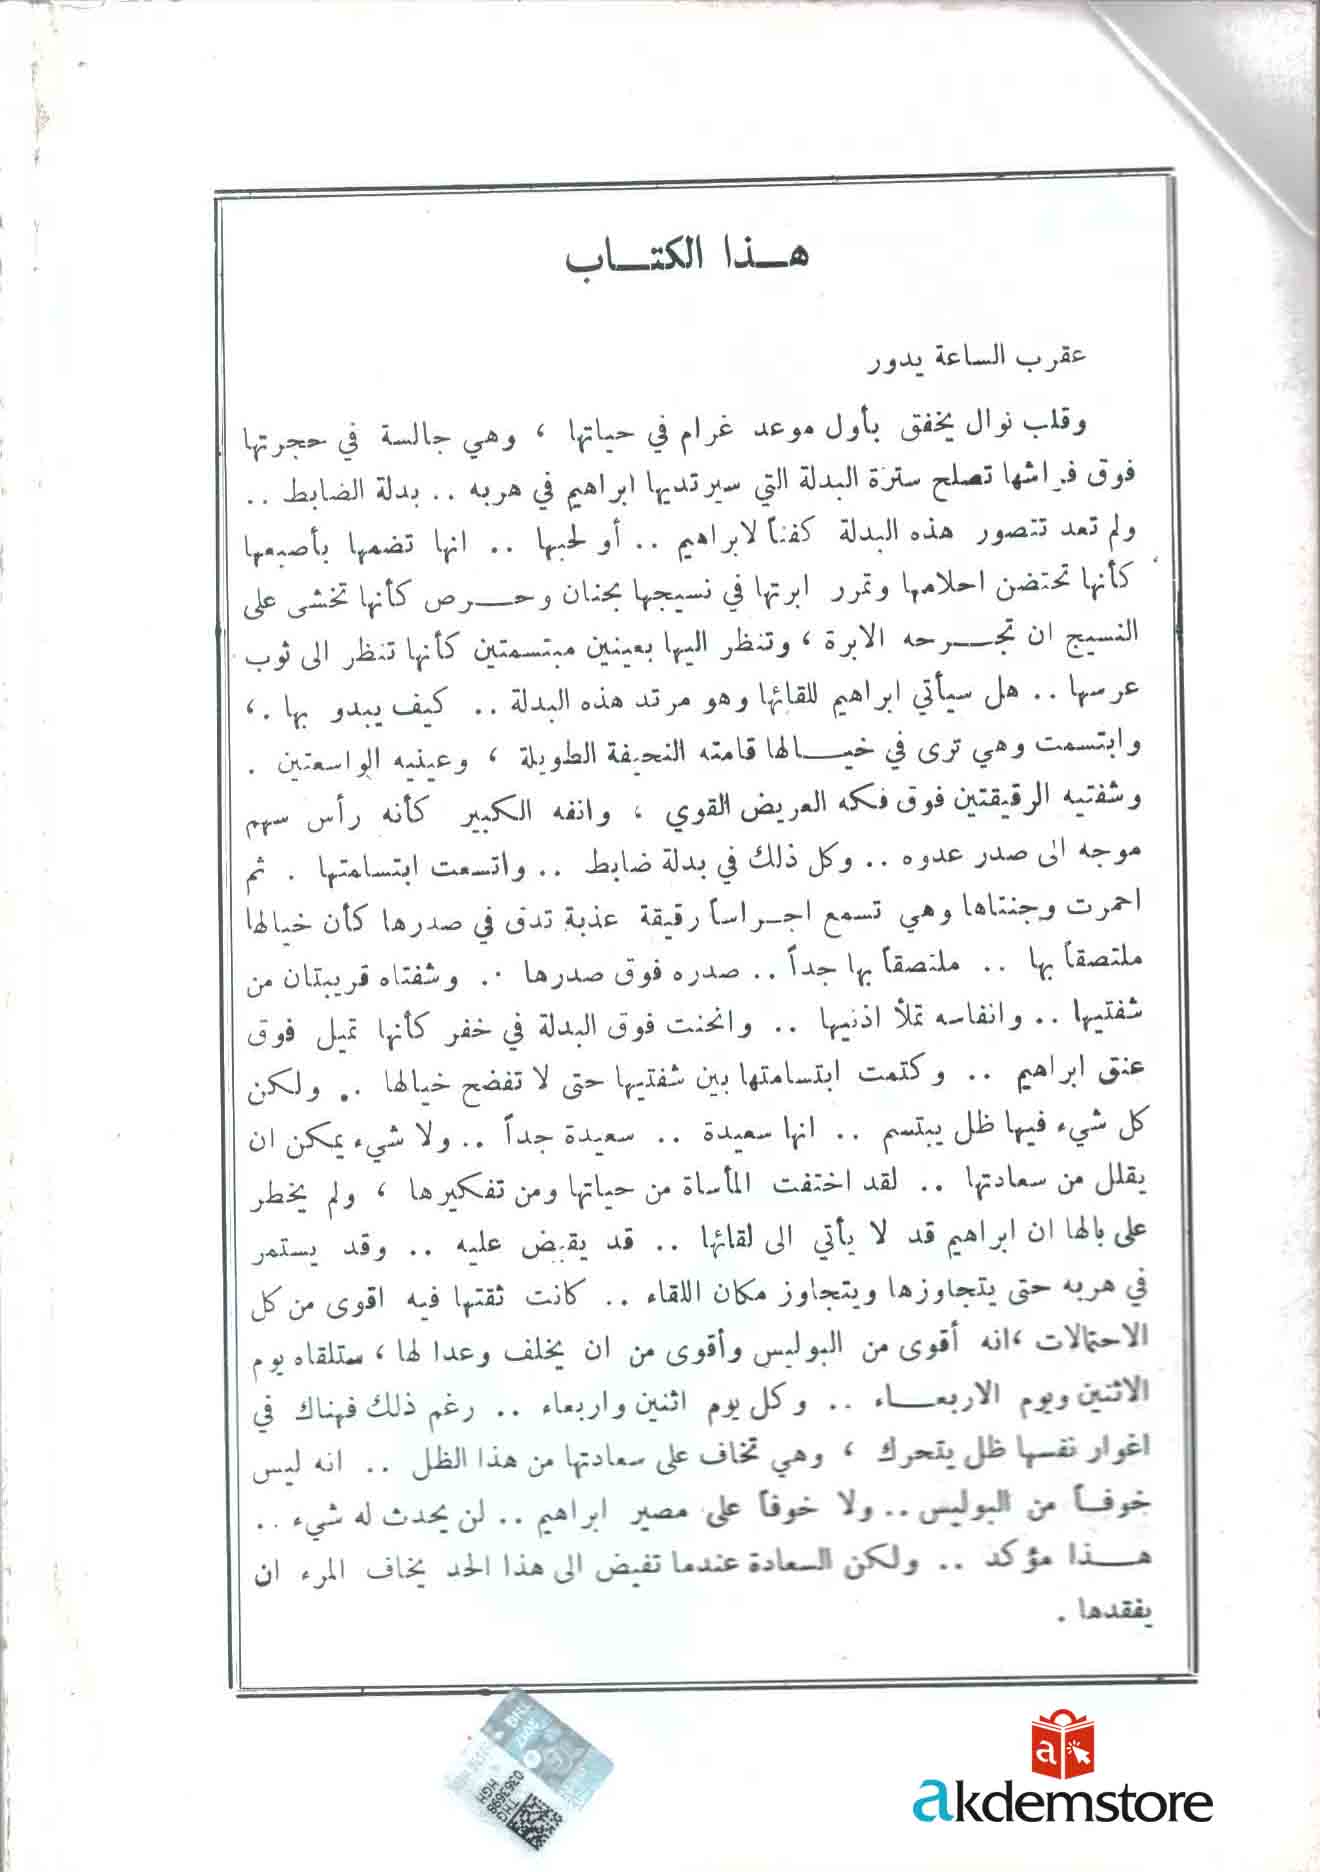 هـــذا الكتـــاب
عقرب الساعة يدور
وقلب نوال يخفق بأول موعد غرام في حياتها ، وهي جالسة في حجرتها
فوق فراشها تصلح سترة البدلة التي سيرتديها ابراهيم في هربه .. بدلة الضابط ..
ولم تعد تتصور هذه البدلة كفناً لابراهيم .. أو لحبها .. انها تضمها بأصبعها
كأنها تحتضن احلامها وتمرر ابرتها في نسيجها بحنان وحـــرص كأنها تخشى على
النسيج ان تجـــرحه الابرة ، وتنظر اليها بعينين مبتسمتين كأنها تنظر الى ثوب
عرسها .. هل سيأتي ابراهيم للقائها وهو مرتد هذه البدلة .. كيف يبدو بها .،
وابتسمت وهي ترى في خيـــالها قامته النحيفة الطويلة ، وعينيه الواسعتين .
وشفتيه الرقيقتين فوق فكه العريض القوي ، وانفه الكبير كأنه رأس سهم
موجه الى صدر عدوه .. وكل ذلك في بدلة ضابط .. واتسعت ابتسامتها . ثم
احمرت وجنتاها وهي تسمع اجـراساً رقيقة عذبة تدق في صدرها كأن خيالها
ملتصقاً بها .. ملتصقاً بها جداً .. صدره فوق صدرها .. وشفتاه قريبتان من
شفتيها .. وانفاسه تملأ اذنيها .. وانحنت فوق البدلة في خفر كأنها تميل فوق
عنق ابراهيم .. وكتمت ابتسامتها بين شفتيها حتى لا تفضح خيالها .. ولكن
كل شيء فيها ظل يبتسم .. انها سعيدة .. سعيدة جداً .. ولا شيء يمكن ان
يقلل من سعادتها .. لقد اختفت المأساة من حياتها ومن تفكيرها ، ولم يخطر
على بالها ان ابراهيم قد لا يأتي الى لقائها .. قد يقبض عليه .. وقد يستمر
في هربه حتى يتجاوزها ويتجاوز مكان اللقاء .. كانت ثقتها فيه اقوى من كل
الاحتمالات ،انه أقوى من البوليس وأقوى من ان يخلف وعدا لها ، ستلقاه يوم
الاثنين ويوم الاربعـــاء .. وكل يوم اثنين واربعاء .. رغم ذلك فهناك في
اغوار نفسها ظل يتحرك ، وهي تخاف على سعادتها من هذا الظل .. انه ليس
خوفـــاً من البوليس .. ولا خوفاً على مصير ابراهيم .. لن يحدث له شيء ..
هـــذا مؤكد .. ولكن السعادة عندما تفيض الى هذا الحد يخاف المرء ان
يفقدها .
0363698
HGH
akdemstore